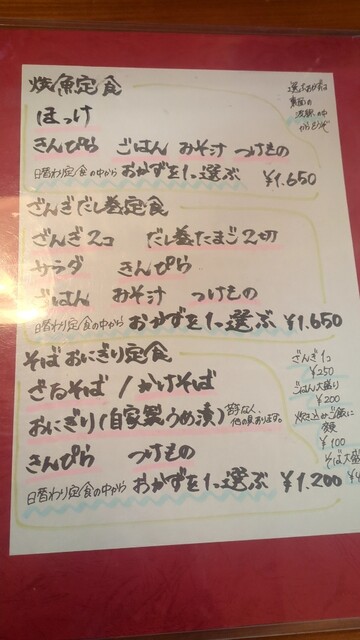 焼魚定食
ほっけ
きんぴら ごはん みそ汁 つけもの
日替わり定食の中から おかずを1つ選ぶ ¥1.650
ざんぎだし巻定食
ざんぎ2コ だし巻たまご2切
サラダ きんぴら
ごはん みそ汁 つけもの
日替わり定食の中から おかずを1つ選ぶ ¥1.650
そばおにぎり定食
ざるそば / かけそば
おにぎり(自家製うめ漬)
他の具あります。
きんぴら つけもの
日替わり定食の中から おかずを1つ選ぶ ¥1.200
選べるおかずは
裏面の
ざんぎ1コ
¥250
ごはん大盛り
¥200
炊き込みご飯に
変更
¥100
そば大盛